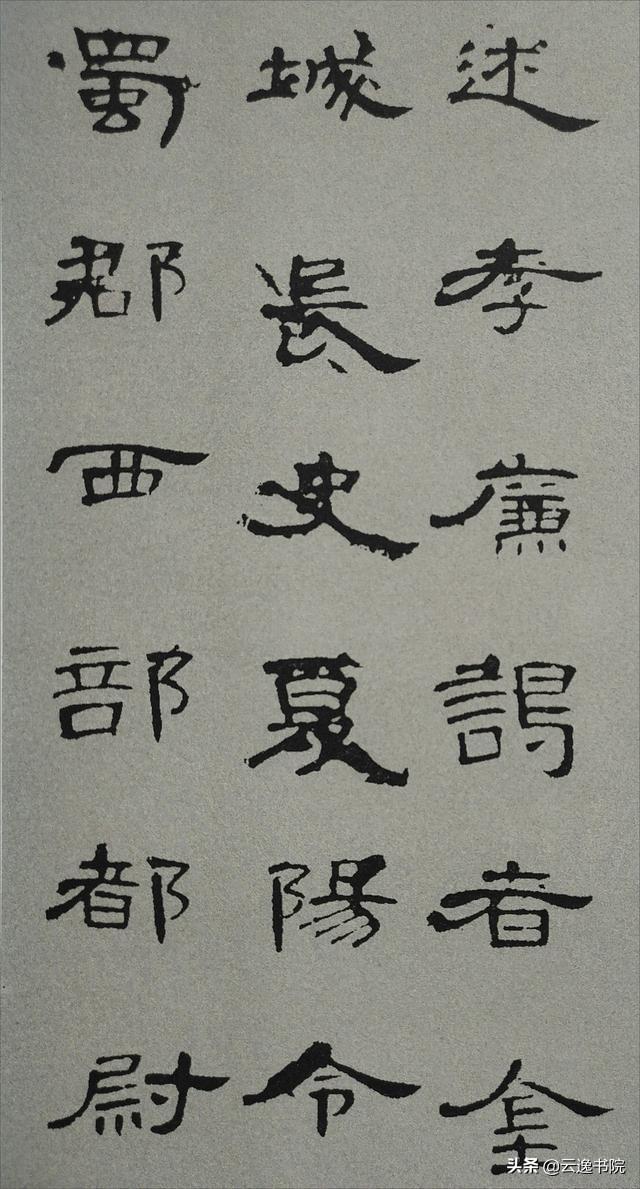 述孝廉謁者金
城長史夏陽令
蜀郡西部都尉
头条 @云逸书院